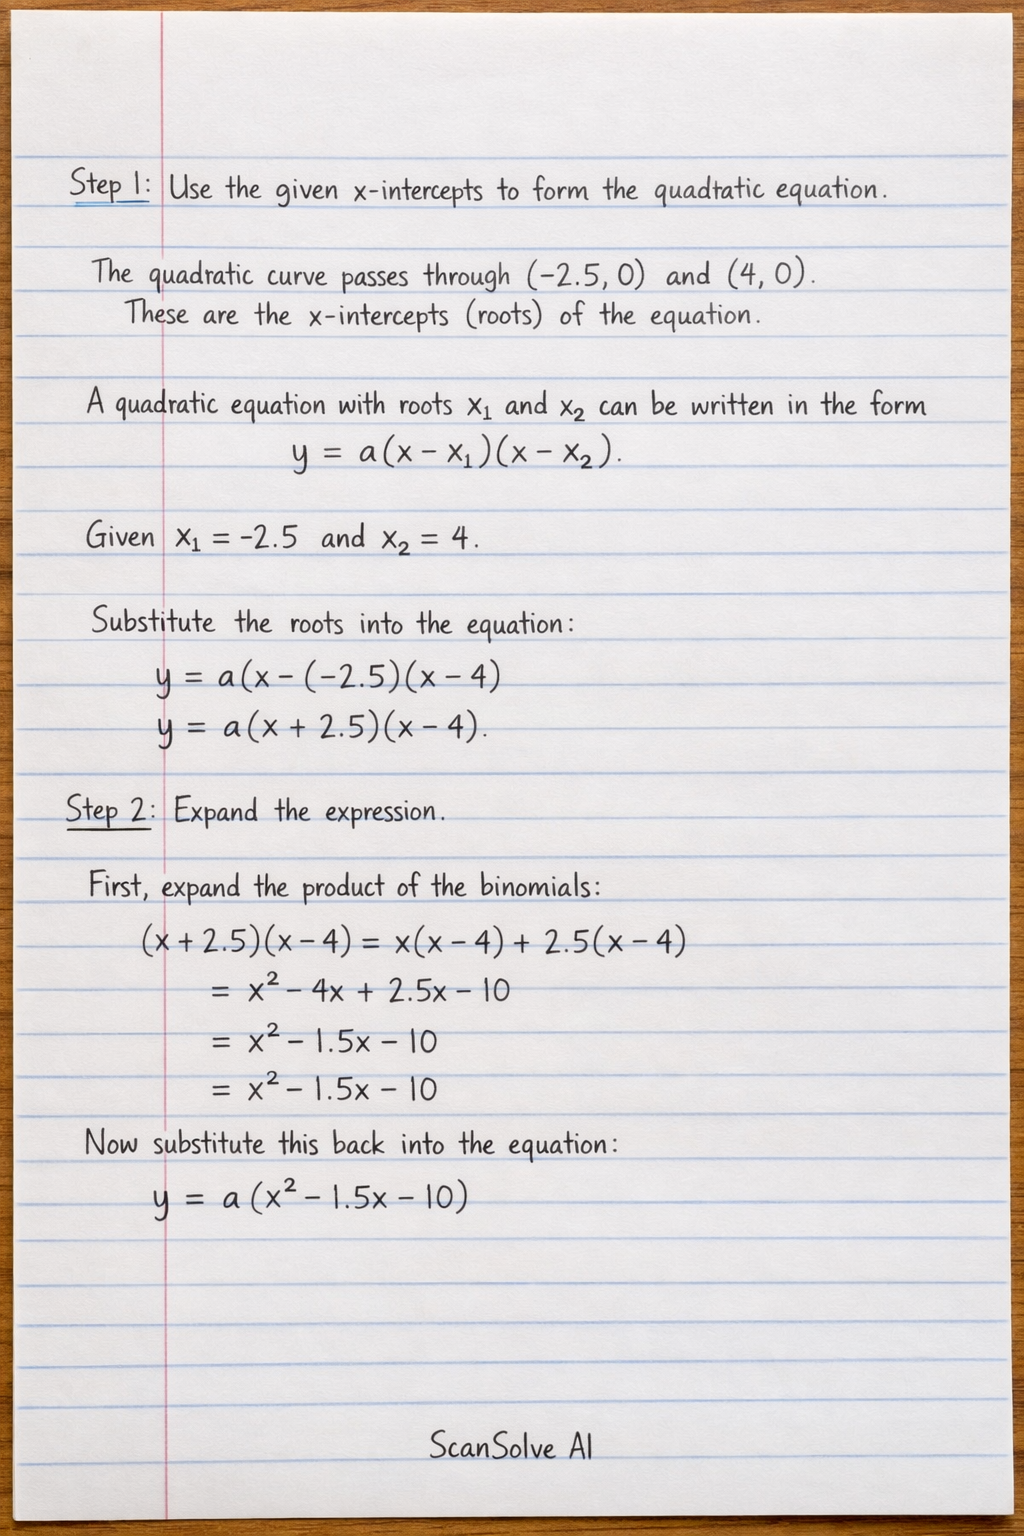 Step 1: Use the given x-intercepts to form the quadtatic equation.
The quadratic curve passes through (-2.5, 0) and (4, 0).
These are the x-intercepts (roots) of the equation.
A quadratic equation with roots x₁ and x₂ can be written in the form
y = a(x - x₁)(x - x₂).
Given x₁ = -2.5 and x₂ = 4.
Substitute the roots into the equation:
y = a(x - (-2.5)(x - 4)
y = a(x + 2.5)(x - 4).
Step 2: Expand the expression.
First, expand the product of the binomials:
(x + 2.5)(x - 4) = x(x - 4) + 2.5(x - 4)
= x² - 4x + 2.5x - 10
= x² - 1.5x - 10
= x² - 1.5x - 10
Now substitute this back into the equation:
y = a (x² - 1.5x - 10)
ScanSolve AI